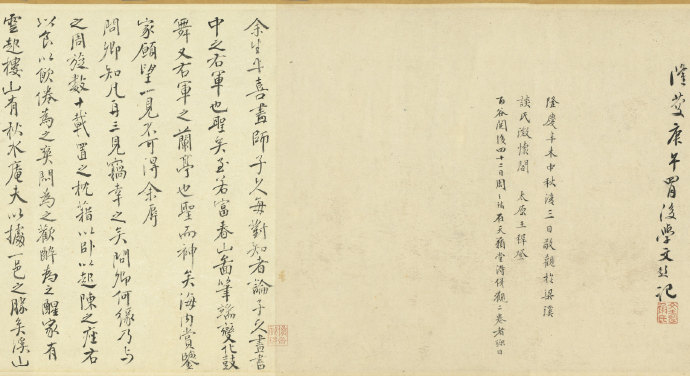 隆慶庚午四月後學文彭記
隆慶辛未中秋後三日敬觀於梁溪
談氏澂懷閣 太原王穉登
百谷閱後四十二日周天球在天籟堂得併觀二卷者彌日
余生平喜畫師子久每對知者論子久畫書
中之右軍也聖矣至若富春山圖筆端變化鼓
舞又右軍之蘭亭也聖而神矣海內賞鑒
家願望一見不可得余辱
問卿知凡再三見竊幸之矣問卿何緣乃與
之周旋數十載置之枕藉以臥以起陳之座右
以食以飲倦為之爽悶為之歡醉為之醒家有
雲起樓山有秋水庵夫以據一邑之勝矣溪山